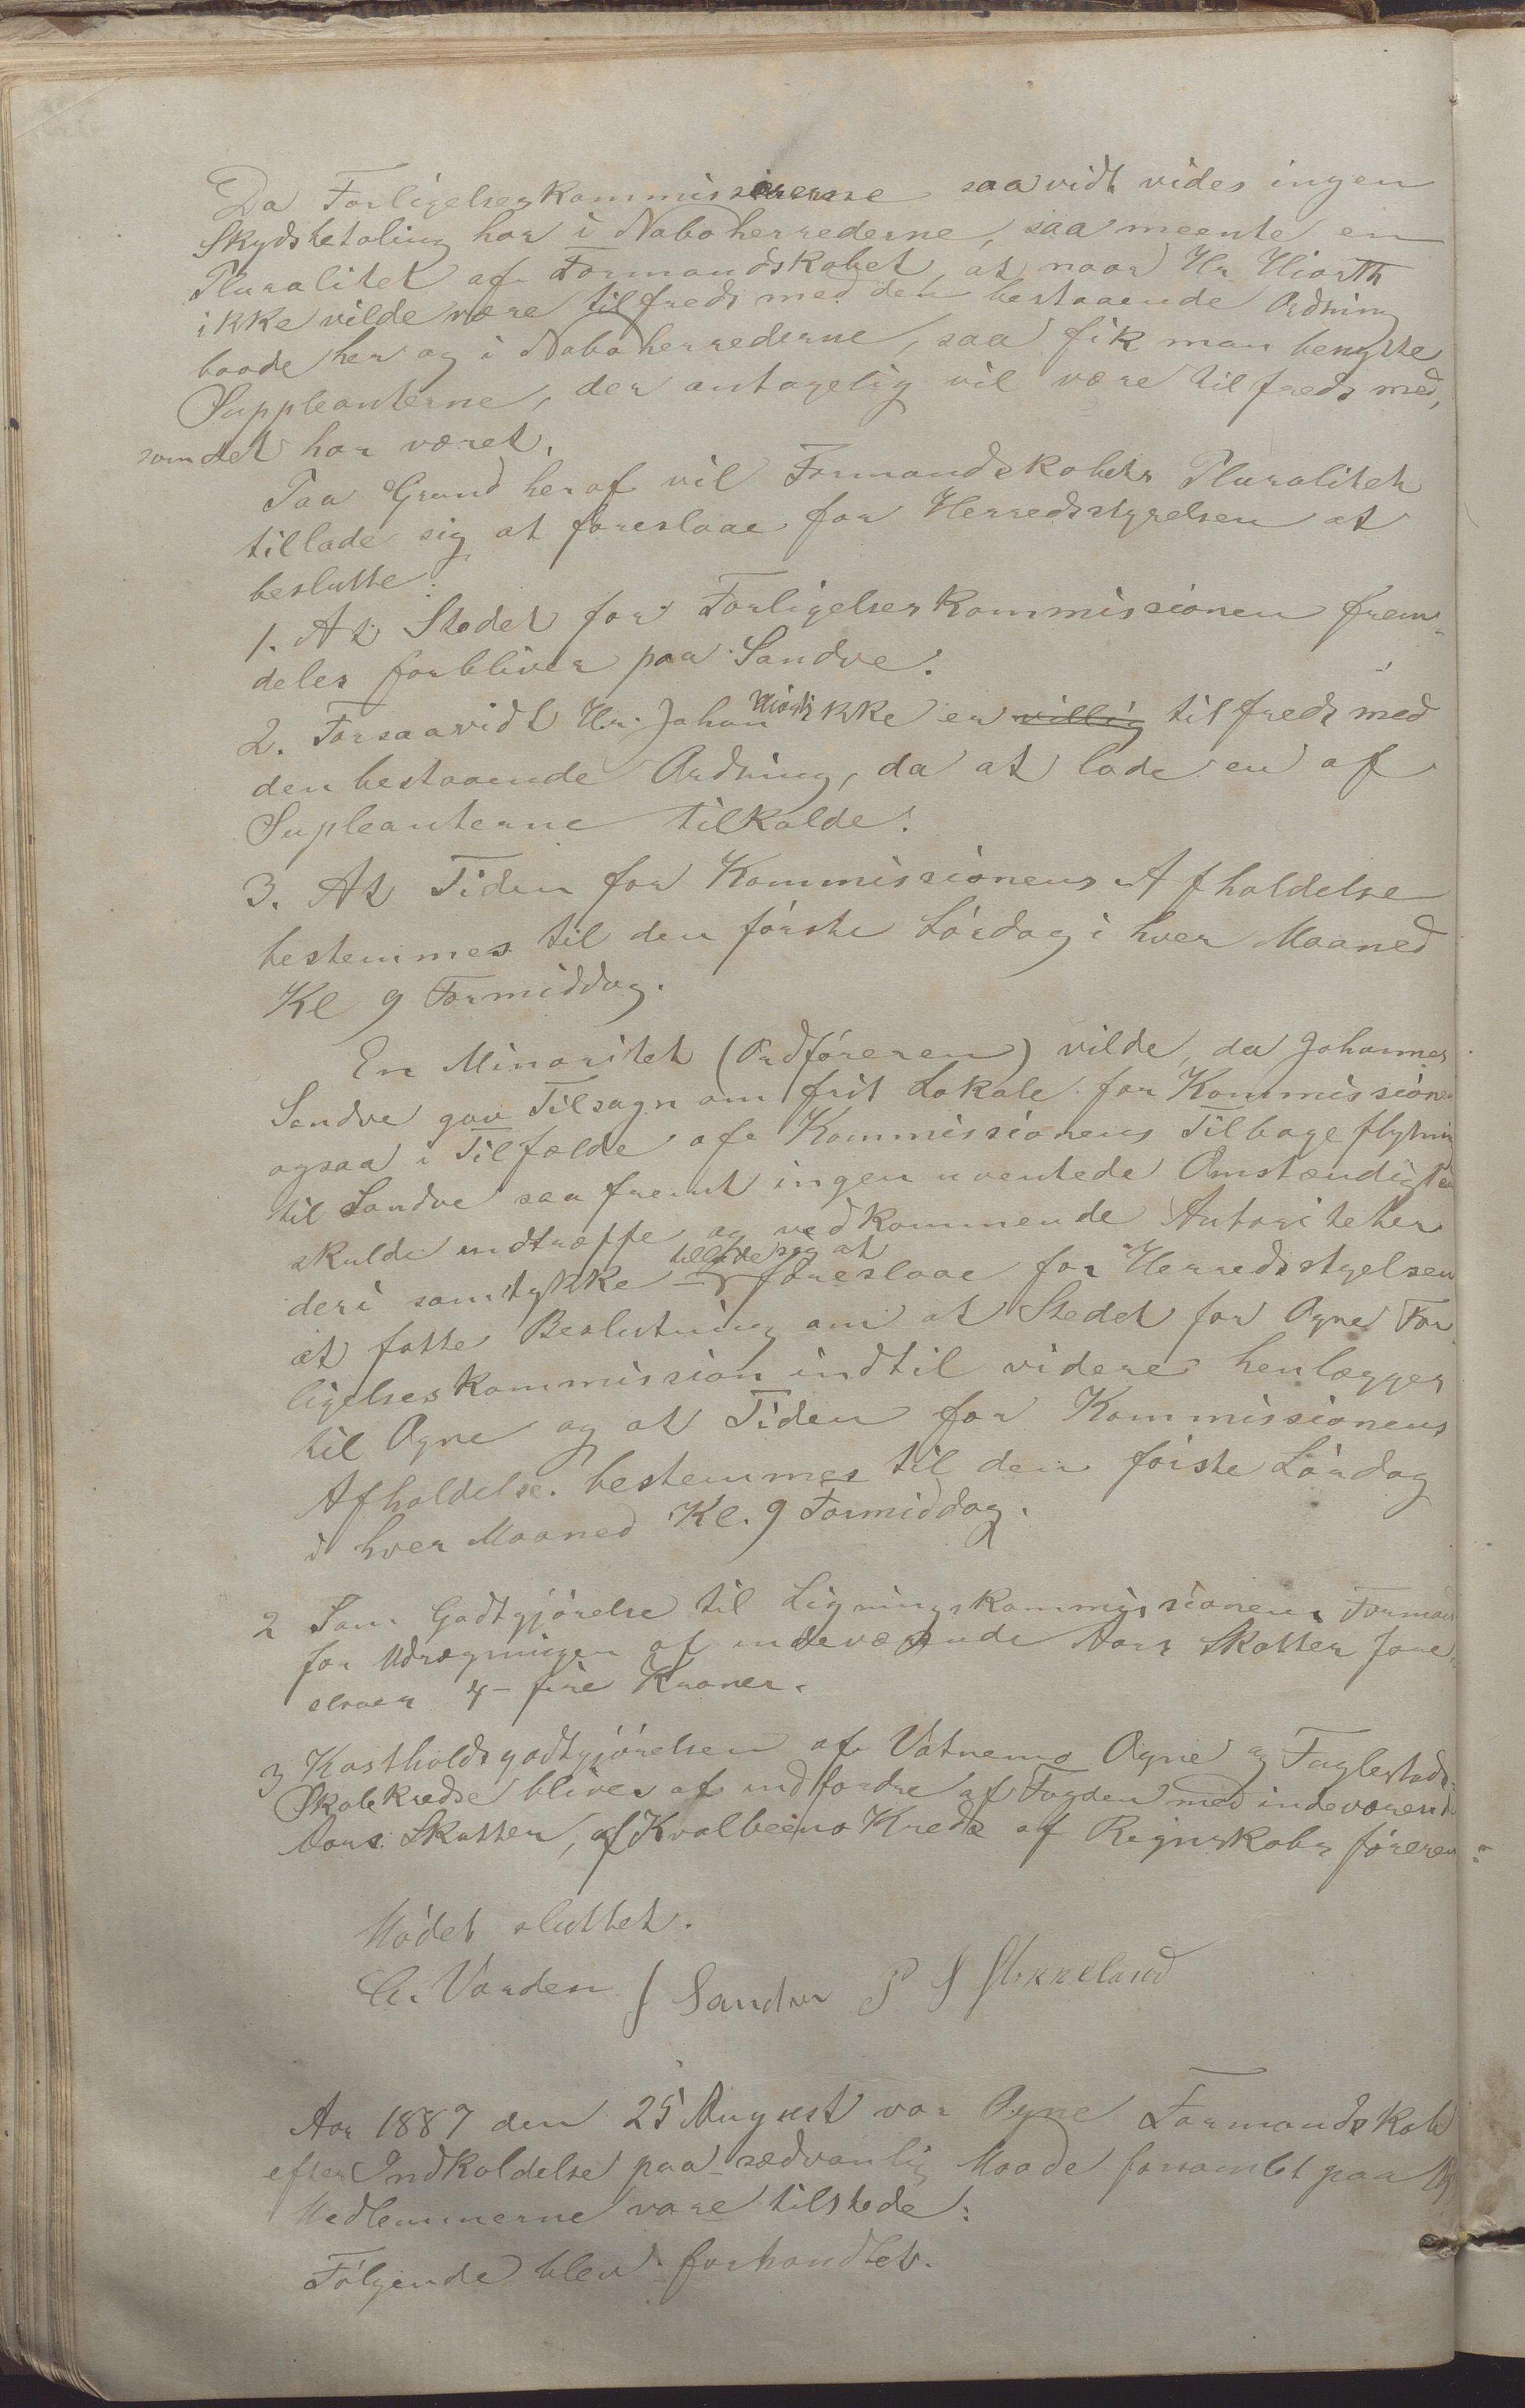 Da Forligelseskommissærerne saavidt vides ingen
Skydsbetaling har i Naboherrederne, saa meente en
Pluralitet af Formandskabet, at naar Hr Hiorth
ikke vilde være tilfreds med den bestaaende Ordning
baade her og i Naboherrederne, saa fik man benytte
Suppleanterne, der antagelig vil være tilfreds med,
som det har været.
Paa Grund heraf vil Formandskabets Pluralitet
tillade sig at foreslaae for Herredsstyrelsen at
beslutte:
1. At Stedet for Forligelseskommissionen frem-
deles forbliver paa Sandve.
2. Forsaavidt Hr. Johan Hiorth ikke er villig tilfreds med
den bestaaende Ordning, da at lade en af
Supleanterne tilkalde.
3. At Tiden for Kommissionens Afholdelse
bestemmes til den første Lørdag i hver Maaned
Kl 9 Formiddag.
En Minoritet (Ordføreren) vilde, da Johannes
Sandve gav Tilsagn om frit Lokale for Kommissionen
ogsaa i Tilfælde af Kommissionens Tilbageflytnin
til Sandve saa fremt ingen uventede Omstændigh
skulde indtræffe og vedkommende Autoriteter
deri samtykke tillade sig at foreslaae for Herredsstyelsen
at fatte Beslutning om at Stedet for Ogne For
ligelseskommission indtil videre henlægges
til Ogne og at Tiden for Kommissionens
Afholdelse. bestemmes til den første Lørdag
i hver Maaned Kl. 9 Formiddag.
2 Som Godtgjørelse til Ligningskommissionens Formand
for Udregningen af indeværende Aars Skatter fore
slaaes 4 - fire Kroner.
3 Kostholdsgodtgjørelsen af Vatnemo Ogne og Fuglestads
Skolekredse blives af indfordre af Fogden med indeværende
Aars Skatter, af Kvalbeins Kreds af Regnskabsføreren
Mødet sluttet.
C. Varden J Sandve P J Stokkeland
Aar 1887 den 25 August var Ogne Formandskab
efter Indkaldelse paa sædvanlig Maade forsamlet paa
Medlemmerne vare tilstede:
Følgende blev forhandlet.